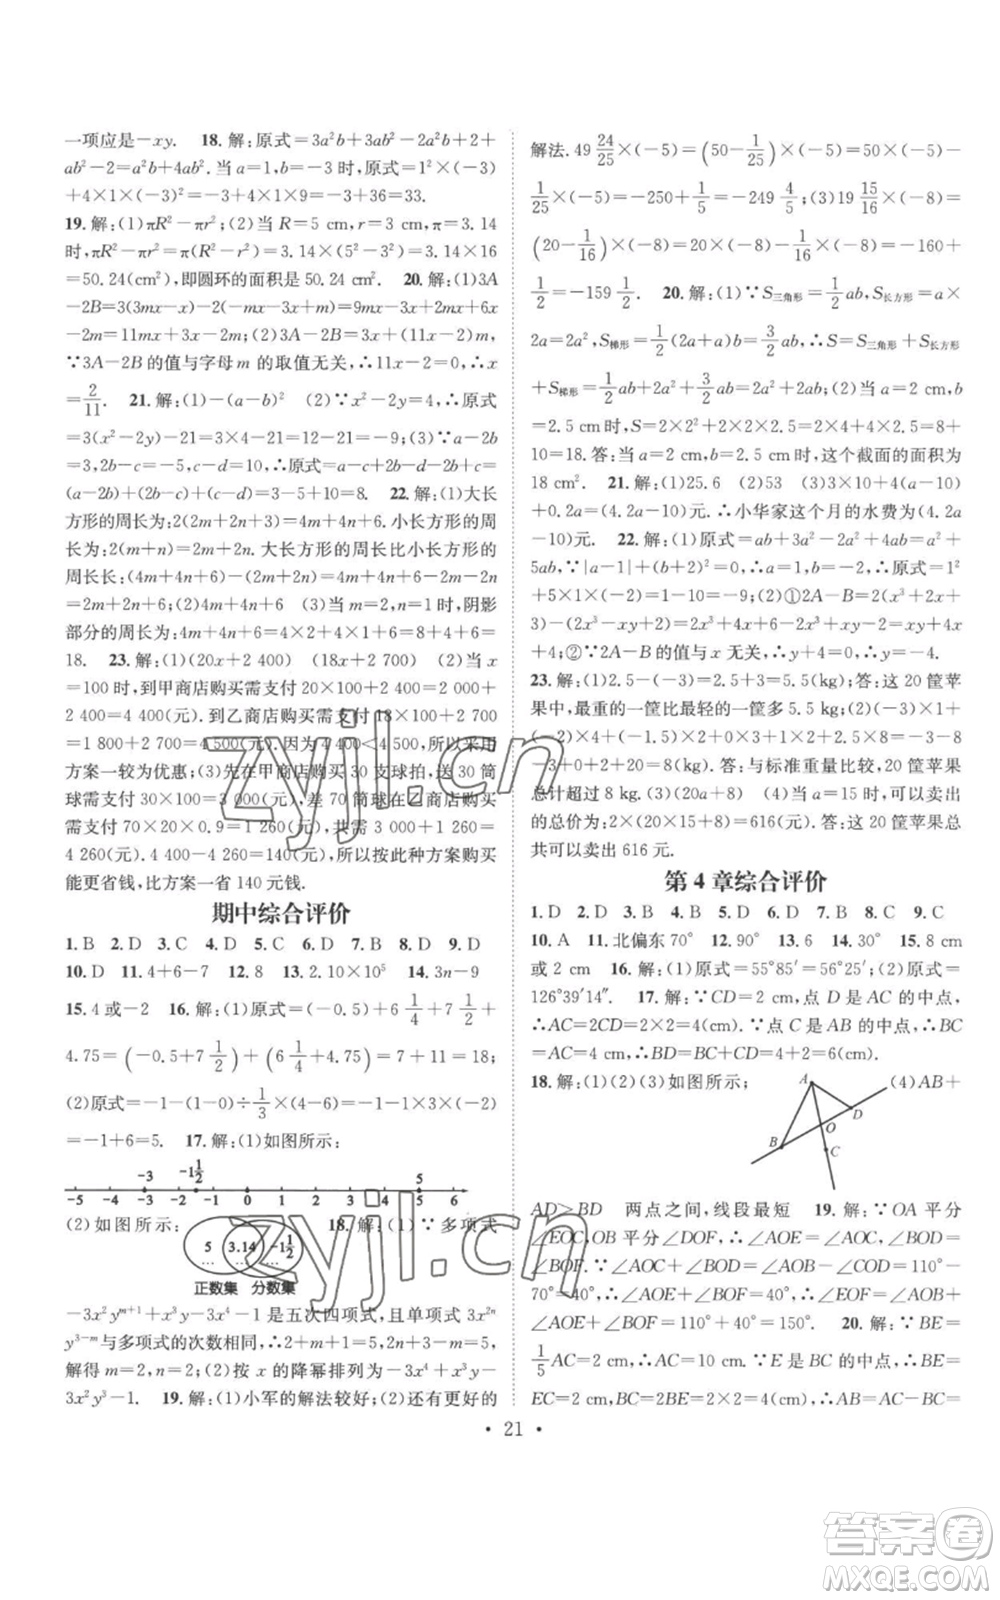 一项应是－xy.　18. 解：原式＝3a²b＋3ab²－2a²b＋2＋
ab²－2＝a²b＋4ab². 当 a＝1,b＝－3 时，原式＝1²×(－3)
＋4×1×(－3)²＝－3＋4×1×9＝－3＋36＝33.
19. 解：(1)πR²－πr²；(2)当 R＝5 cm,r＝3 cm,π＝3.14
时，πR²－πr²＝π(R²－r²)＝3.14×(5²－3²)＝3.14×16
＝50.24(cm²)，即圆环的面积是 50.24 cm².　20. 解：(1)3A
－2B＝3(3mx－x)－2(－mx－3x＋m)＝9mx－3x＋2mx＋6x
－2m＝11mx＋3x－2m；(2)3A－2B＝3x＋(11x－2)m，
∵3A－2B 的值与字母 m 的取值无关，∴11x－2＝0，∴x
＝2/11.　21. 解：(1)－(a－b)²　(2)∵x²－2y＝4，∴原式
＝3(x²－2y)－21＝3×4－21＝12－21＝－9；(3)∵a－2b
＝3,2b－c＝－5,c－d＝10，∴原式＝a－c＋2b－d－2b＋c＝
(a－2b)＋(2b－c)＋(c－d)＝3－5＋10＝8.　22. 解：(1)大长
方形的周长为：2(2m＋2n＋3)＝4m＋4n＋6. 小长方形的周
长为：2(m＋n)＝2m＋2n. 大长方形的周长比小长方形的周
长长：(4m＋4n＋6)－(2m＋2n)＝4m＋4n＋6－2m－2n
＝2m＋2n＋6；(2)4m＋4n＋6　(3)当 m＝2,n＝1 时，阴影
部分的周长为 4m＋4n＋6＝4×2＋4×1＋6＝8＋4＋6＝
18.　23. 解：(1)(20x＋2 400)　(18x＋2 700)　(2)当 x
＝100 时，到甲商店购买需支付 20×100＋2 400＝2 000＋
2 400＝4 400(元). 到乙商店购买需支付 18×100＋2 700
＝1 800＋2 700＝4 500(元). 因为 4 400＜4 500，所以采用
方案一较为优惠；(3)先在甲商店购买 30 支球拍，送 30 筒
球需支付 30×100＝3 000(元)，差 70 筒球在乙商店购买
需支付 70×20×0.9＝1 260(元)，共需 3 000＋1 260＝
4 260(元). 4 400－4 260＝140(元)，所以按此种方案购买
能更省钱，比方案一省 140 元钱.
期中综合评价
1. B　2. D　3. C　4. D　5. C　6. B　7. D　8. D　9. D
10. D　11. 4＋6－7　12. 8　13. 2.10×10⁵　14. 3n－9
15. 4 或－2　16. 解：(1)原式＝(－0.5)＋6 1/4＋7 1/2＋
4.75＝(－0.5＋7 1/2)＋(6 1/4＋4.75)＝7＋11＝18；
(2)原式＝－1－(1－0)÷1/3×(4－6)＝－1－1×3×(－2)
＝－1＋6＝5.　17. 解：(1)如图所示：
－3　－1 1/2　5
－5 －4 －3 －2 －1 0 1 2 3 4 5 6
(2)如图所示：　18. 解：(1)∵多项式
5　3.14　－1 1/2
…　…　…
正数集　分数集
－3x²yᵐ⁺¹＋x³y－3x⁴－1 是五次四项式，且单项式 3x²ⁿ
y³⁻ᵐ与多项式的次数相同，∴2＋m＋1＝5,2n＋3－m＝5，
解得 m＝2,n＝2；(2)按 x 的降幂排列为－3x⁴＋x³y－
3x²y³－1.　19. 解：(1)小军的解法较好；(2)还有更好的
解法. 49 24/25×(－5)＝(50－1/25)×(－5)＝50×(－5)－
1/25×(－5)＝－250＋1/5＝－249 4/5；(3)19 15/16×(－8)＝
(20－1/16)×(－8)＝20×(－8)－1/16×(－8)＝－160＋
1/2＝－159 1/2.　20. 解：(1)∵S三角形＝1/2ab,S长方形＝a×
2a＝2a²,S梯形＝1/2(2a＋a)b＝3/2ab，∴S＝S三角形＋S长方形
＋S梯形＝1/2ab＋2a²＋3/2ab＝2a²＋2ab；(2)当 a＝2 cm,b
＝2.5 cm 时，S＝2×2²＋2×2×2.5＝2×4＋4×2.5＝8＋
10＝18. 答：当 a＝2 cm,b＝2.5 cm 时，这个截面的面积为
18 cm².　21. 解：(1)25.6　(2)53　(3)3×10＋4(a－10)
＋0.2a＝(4.2a－10)元. ∴小华家这个月的水费为(4.2a
－10)元.　22. 解：(1)原式＝ab＋3a＋2b－2a＋4ab＝a²＋
5ab，∵|a－1|＋(b＋2)²＝0，∴a＝1,b＝－2，∴原式＝1²
＋5×1×(－2)＝1－10＝－9；(2)①2A－B＝2(x³＋2x＋
3)－(2x³－xy＋2)＝2x³＋4x＋6－2x³＋xy－2＝4x＋xy＋
4；②∵2A－B 的值与 x 无关，∴y＋4＝0，∴y＝－4.
23. 解：(1)2.5－(－3)＝2.5＋3＝5.5(kg)；答：这 20 筐苹
果中，最重的一筐比最轻的一筐多 5.5 kg；(2)(－3)×1＋
(－2)×4＋(－1.5)×2＋0×3＋1×2＋2.5×8＝－3－8
－3＋0＋2＋20＝8(kg). 答：与标准重量比较，20 筐苹果
总计超过 8 kg. (3)(20a＋8)　(4)当 a＝15 时，可以卖出
的总价为：2×(20×15＋8)＝616(元)；答：这 20 筐苹果总
共可以卖出 616 元.
第 4 章综合评价
1. D　2. C　3. B　4. B　5. D　6. D　7. B　8. C　9. C
10. A　11. 北偏东 70°　12. 90°　13. 6　14. 30°　15. 8 cm
或 2 cm　16. 解：(1)原式＝55°85′＝56°25′；(2)原式＝
126°39′14″.　17. 解：∵CD＝2 cm，点 D 是 AC 的中点，
∴AC＝2CD＝2×2＝4(cm). ∵点 C 是 AB 的中点，∴BC
＝AC＝4 cm，∴BD＝BC＋CD＝4＋2＝6(cm).
18. 解：(1)(2)(3)如图所示；　(4)AB＋
A
D
O
B
C
AD＞BD　两点之间，线段最短　19. 解：∵OA 平分
∠EOC,OB 平分∠DOF，∴∠AOE＝∠AOC，∠BOF＝
∠BOD，∴∠AOE＋∠BOF＝∠AOC＋∠BOD＝110°－
70°＝40°，∴∠AOB＝∠AOE＋∠BOF＋∠EOF＝
∠AOE＋∠BOF＝110°＋40°＝150°.　20. 解：∵BE＝
1/5AC＝2 cm，∴AC＝10 cm. ∵E 是 BC 的中点，∴BE＝
EC＝2 cm,BC＝2BE＝2×2＝4(cm)，∴AB＝AC－BC＝
• 21 •
zyjl.cn
zyjl.cn
答案卷
MXQE.COM